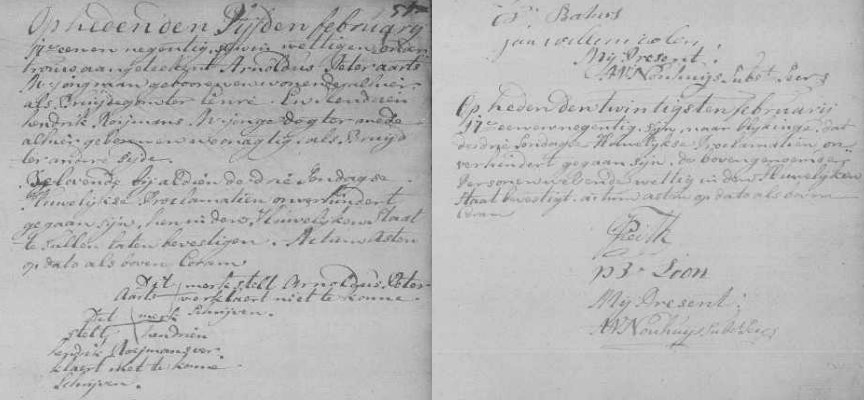 51
Op heden den Vijfden february
17c eenen negentig, sijn wettigen onder
trouw aangeteekent Arnoldus Peter Aarts
N: jongman gebooren en woonende alhier
als Bruijdegom ter eenre. En Hendrien
hendrik Roijmans N: jonge dogter mede
alhier gebooren en woonagtig, als Bruijd
ter andre sijde.
Belovende bij aldien de drie sondagse
Huwelijkse Proclamatien onverhindert
gegaan sijn, hen in den Huwelijken Staat
te sullen laten bevestigen. Actum Asten
op dato als boven Coram
Dit merk stelt Arnoldus Peter
Aarts verklaert niet te konne
Schrijven.
Dit merk
stelt hendrien
hendrik Roijmans ver
klaert niet te konne
Schrijven.
Bakus
jan willem
My Present
AVNouhuijs Subst Secrs
Op heden den twintigsten februarij
17c eenen negentig, sijn, naar blijkinge, dat
de drie Sondagse Huwelijkse Proclamatien on
verhindert gegaan sijn, de bovengenoemde
Persoonen wedersede wettig in den Huwelijken
Staat bevestigt. actum asten op dato als boven
Coram
Lion
My Present
AVNouhuijs Subst Secrs